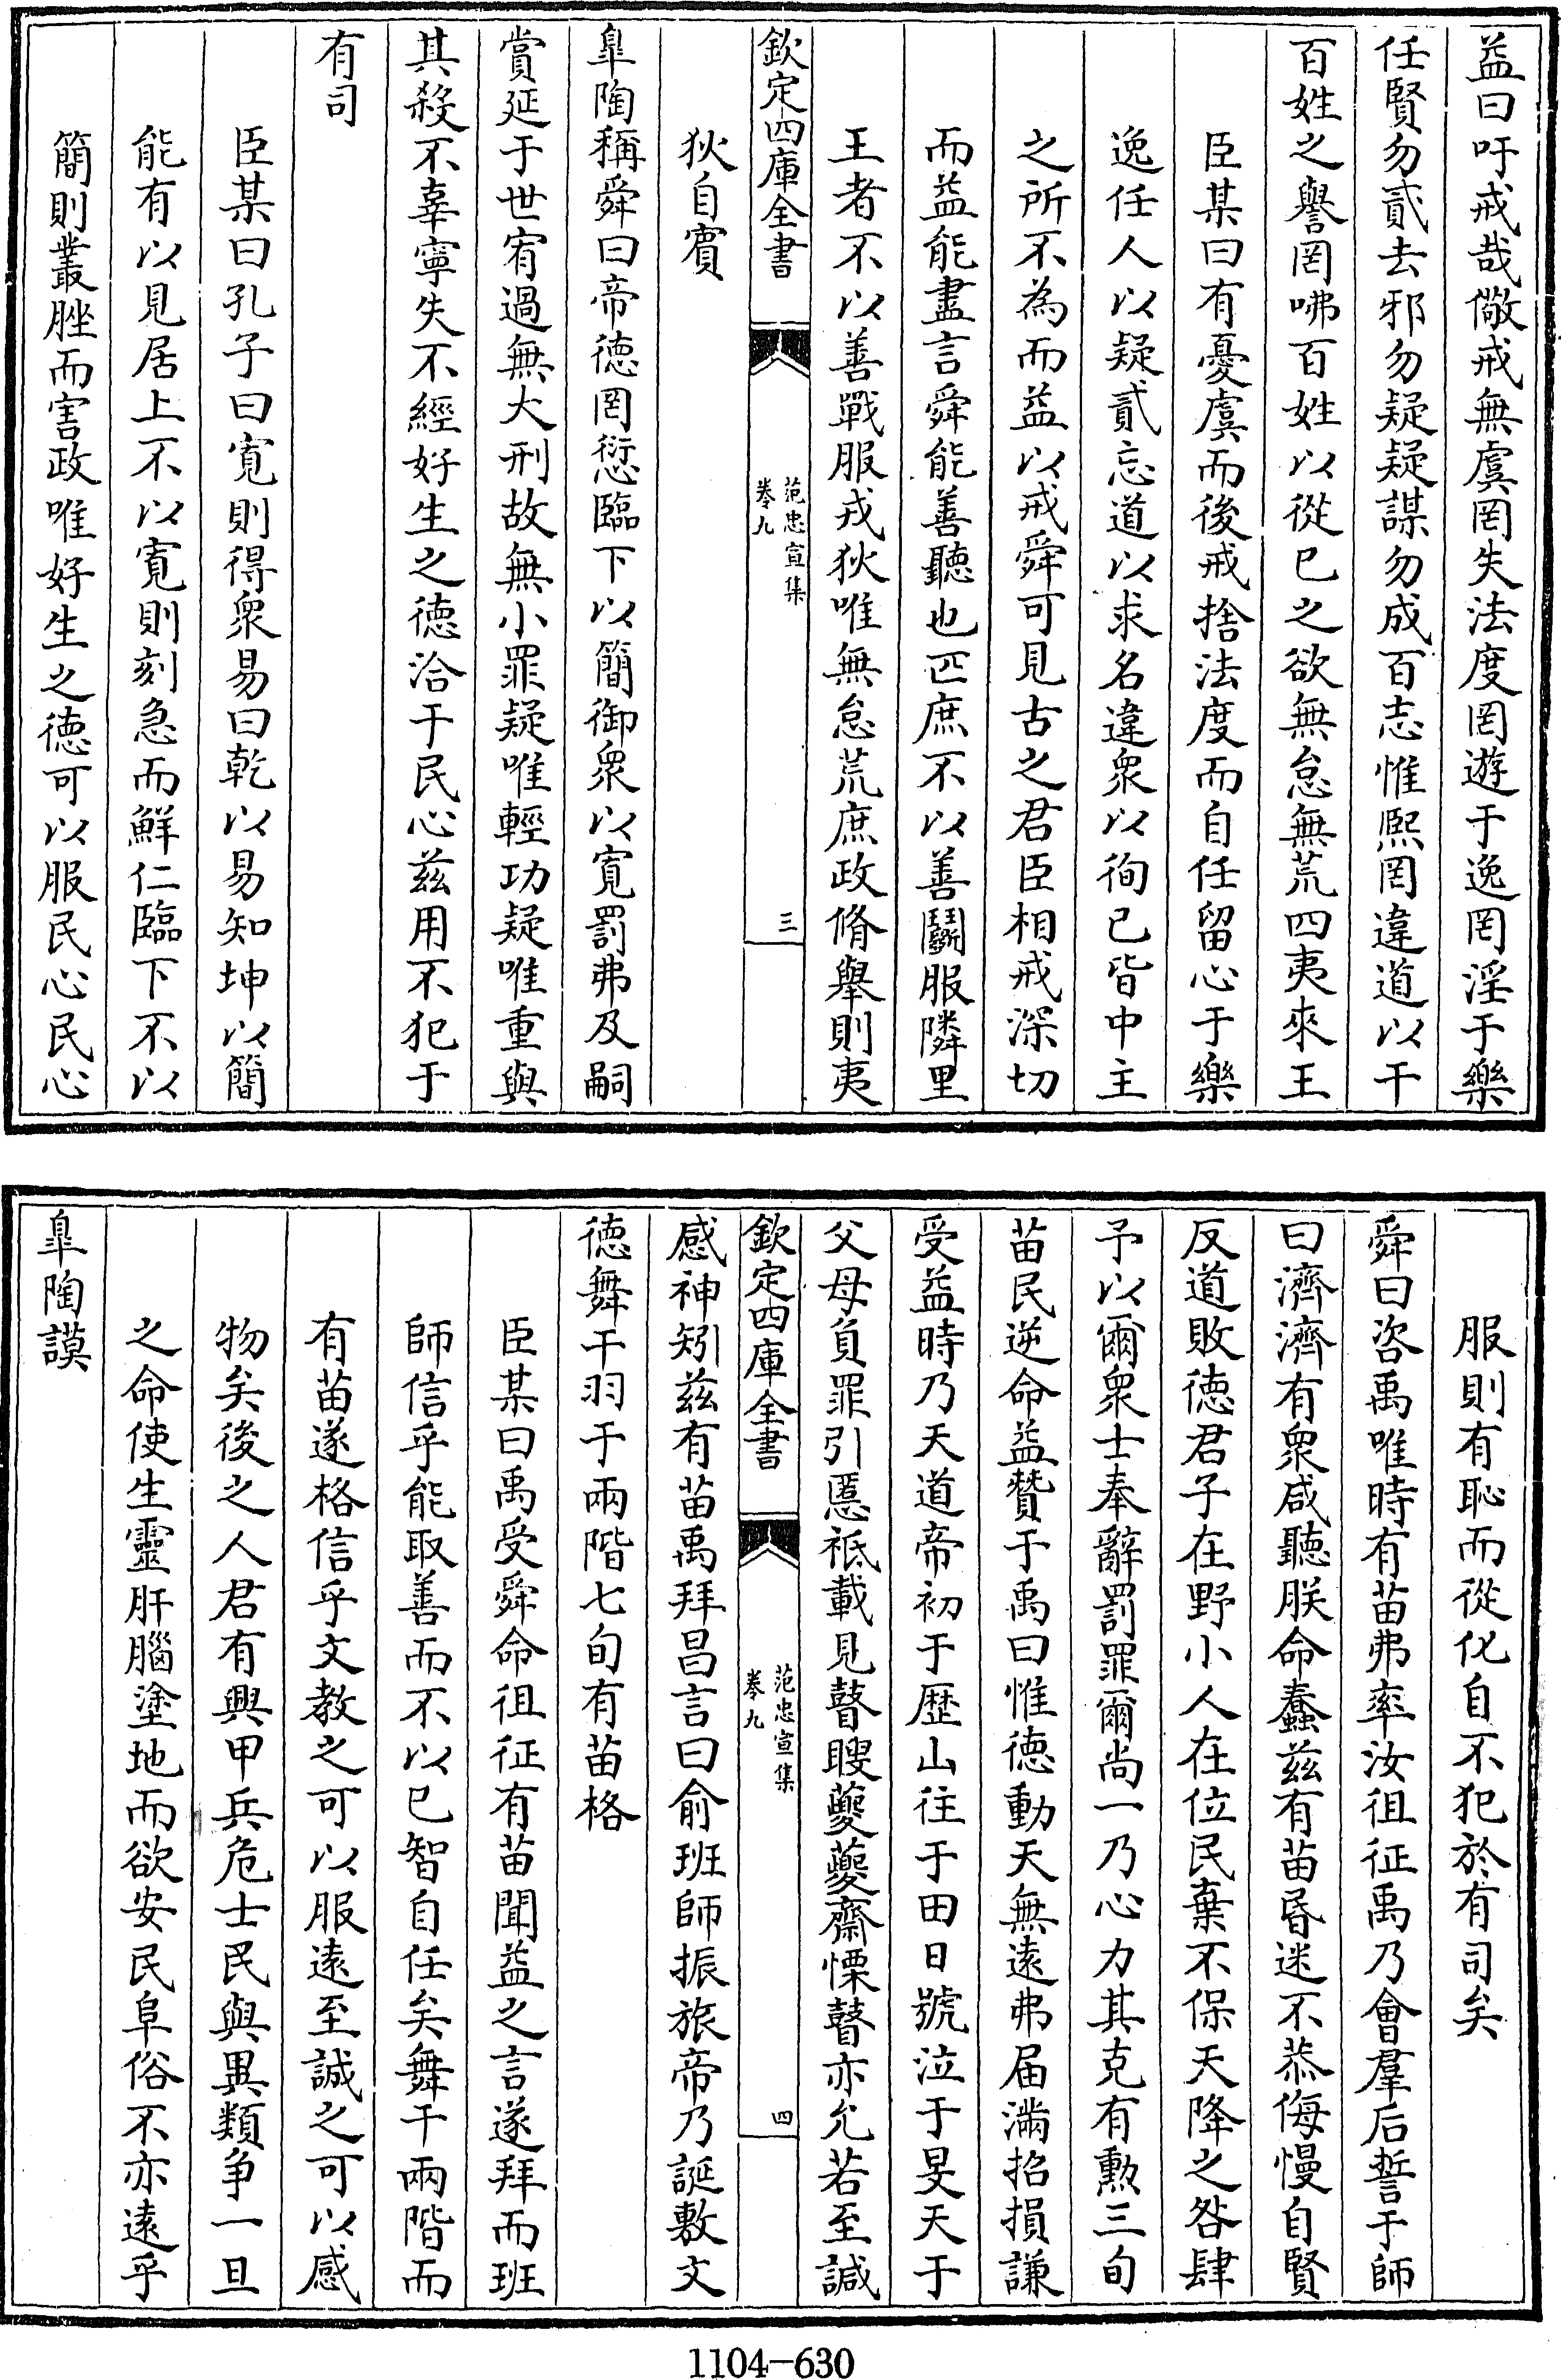 益曰吁戒哉儆戒無虞罔失法度罔遊于逸罔淫于樂
任賢勿貳去邪勿疑疑謀勿成百志惟熙罔違道以干
百姓之譽罔咈百姓以從已之欲無怠無荒四夷來王
臣某曰有憂虞而後戒捨法度而自任留心于樂
逸任人以疑貳忘道以求名違衆以徇已皆中主
之所不為而益以戒舜可見古之君臣相戒深切
而益能盡言舜能善聽也匹庶不以善鬭服隣里
王者不以善戰服戎狄唯無怠荒庶政脩舉則夷
狄自賓
欽定四庫全書
范忠宣集
卷九
三
臯陶稱舜曰帝徳罔愆臨下以簡御衆以寛罰弗及嗣
賞延于世宥過無大刑故無小罪疑唯輕功疑唯重與
其殺不辜寧失不經好生之徳洽于民心兹用不犯于
有司
臣某曰孔子曰寛則得衆易曰乾以易知坤以簡
能有以見居上不以寛則刻急而鮮仁臨下不以
簡則叢脞而害政唯好生之徳可以服民心民心
服則有恥而從化自不犯於有司矣
舜曰咨禹唯時有苗弗率汝徂征禹乃會羣后誓于師
曰濟濟有衆咸聽朕命蠢兹有苗昏迷不恭侮慢自賢
反道敗徳君子在野小人在位民棄不保天降之咎肆
予以爾衆士奉辭罰罪爾尚一乃心力其克有勲三旬
苗民逆命益贊于禹曰惟徳動天無遠弗届滿招損謙
受益時乃天道帝初于歴山往于田日號泣于旻天于
父母負罪引慝祗載見瞽瞍夔夔齋慄瞽亦允若至諴
感神矧兹有苗禹拜昌言曰俞班師振旅帝乃誕敷文
徳舞干羽于兩階七旬有苗格
欽定四庫全書
范忠宣集
卷九
四
臣某曰禹受舜命徂征有苗聞益之言遂拜而班
師信乎能取善而不以已智自任矣舞干兩階而
有苗遂格信乎文教之可以服遠至誠之可以感
物矣後之人君有興甲兵危士民與異類争一旦
之命使生靈肝腦塗地而欲安民阜俗不亦遠乎
臯陶謨
1104-630